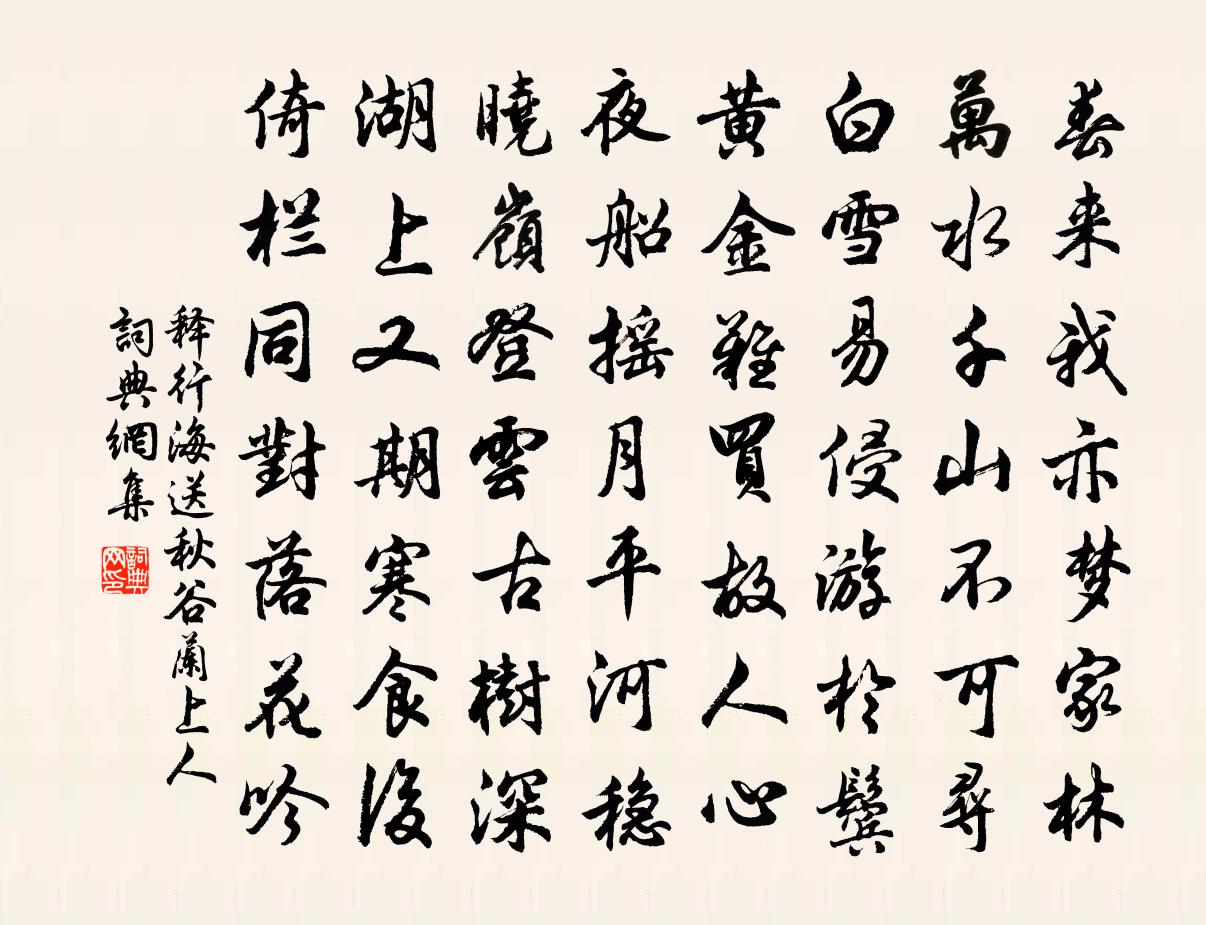 春来我亦梦家林
萬水千山不可尋
白雪易侵游於鬓
黄金難買故人心
夜船摇月平河穏
曉嶺登雲古樹深
湖上又期寒食後
倚栏同對落花吟
释行海送秋谷蘭上人
詞典網集
詞典网印